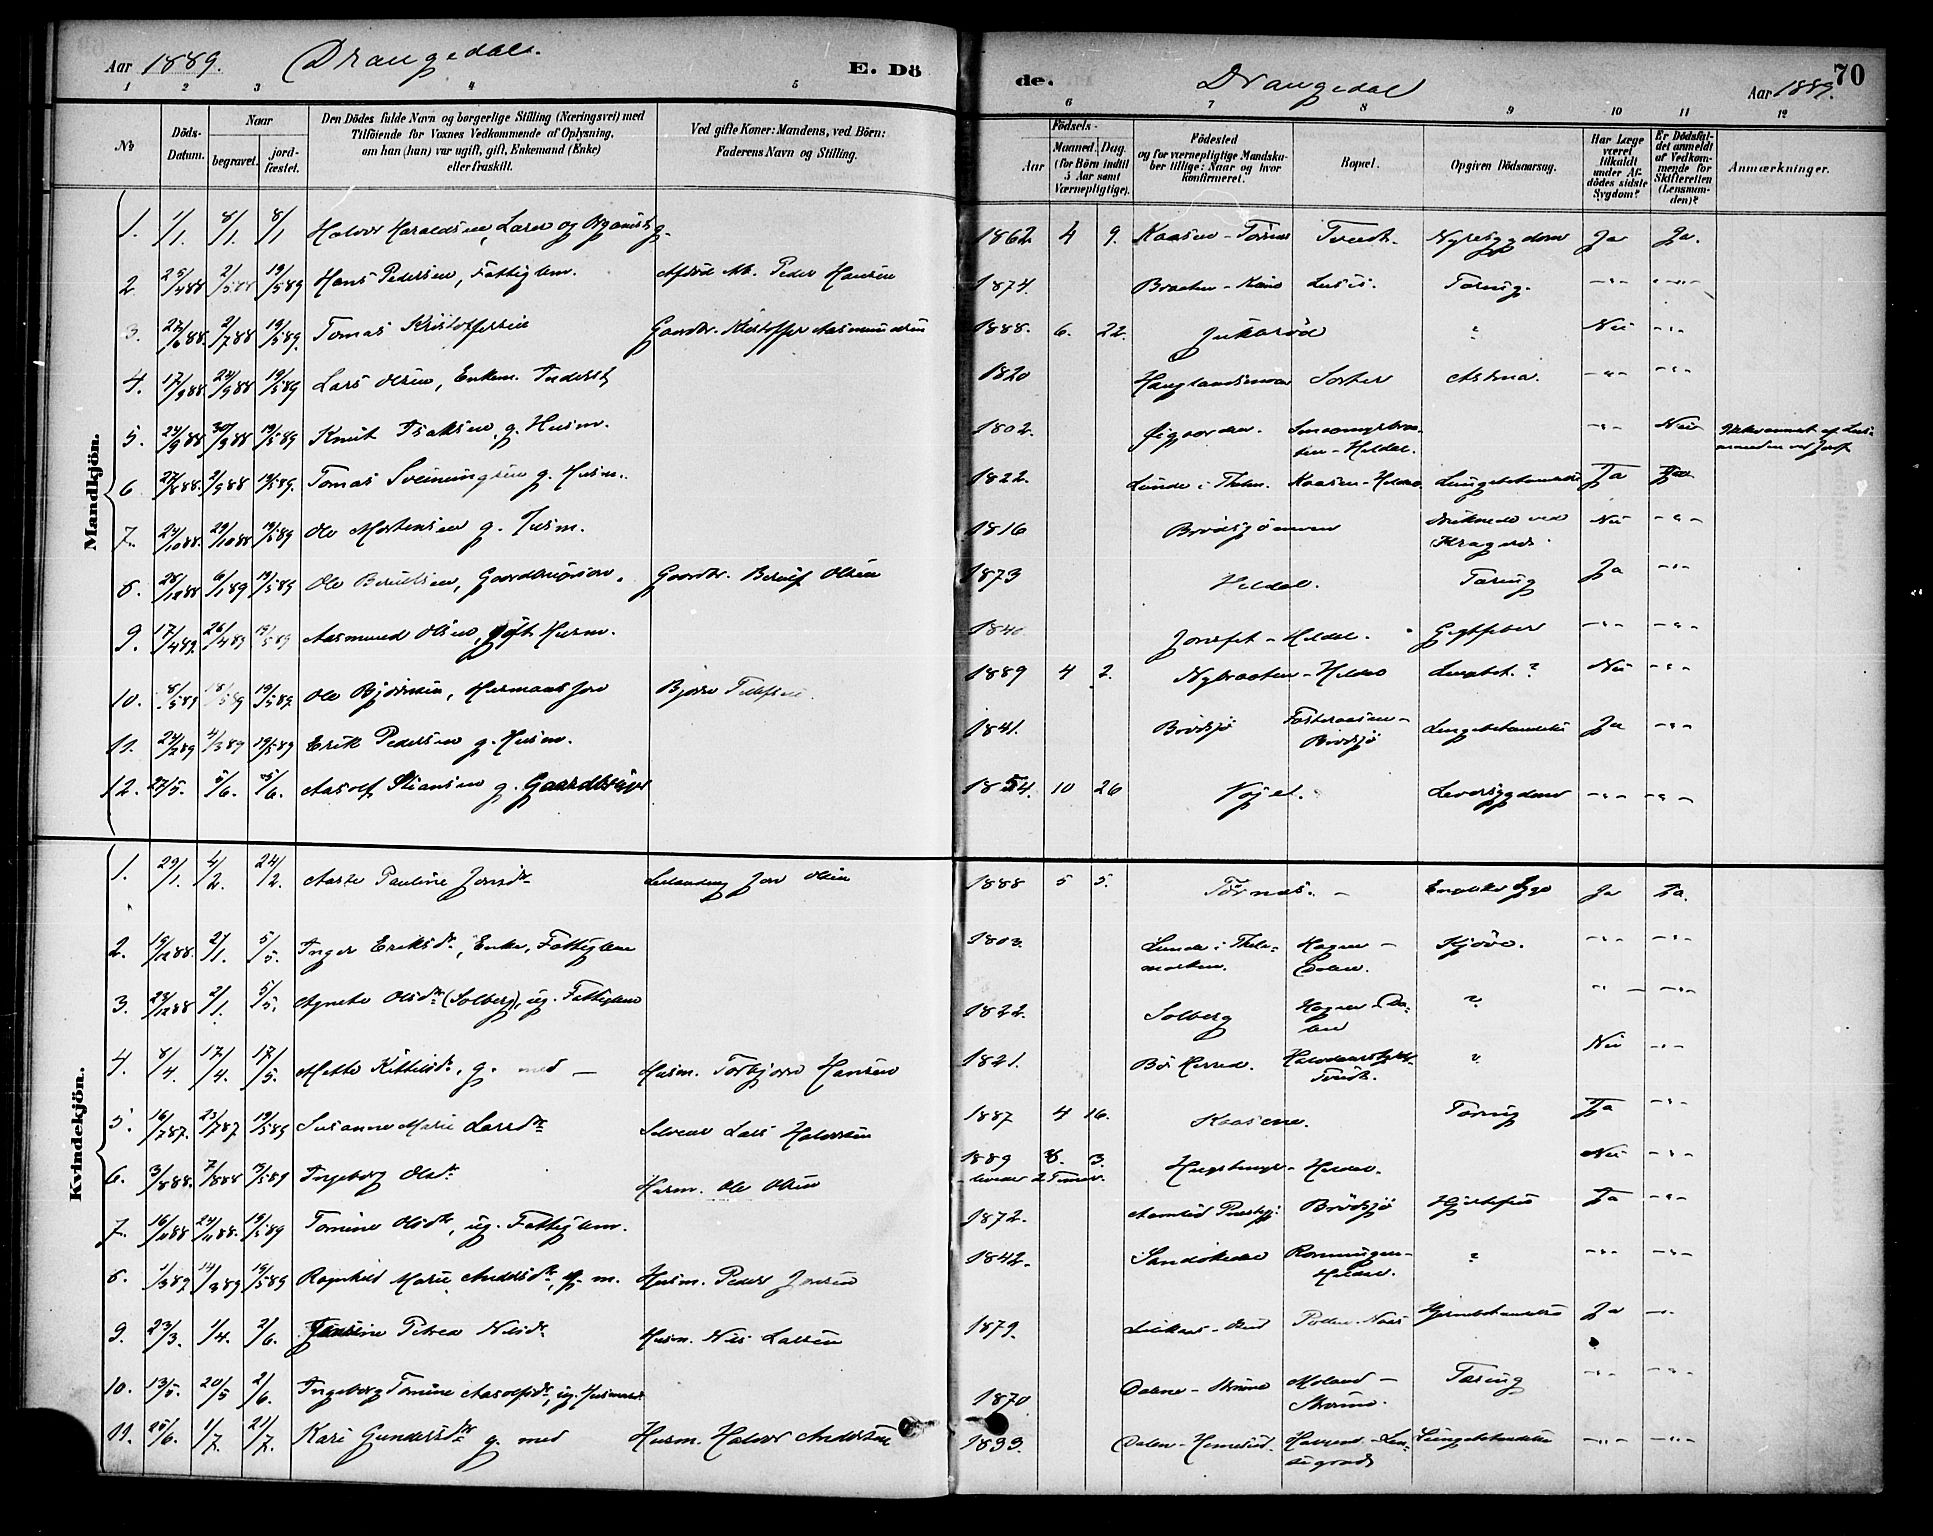 Aar 1889. Drangedal. E. Dö
de. Drangedal Aar 1889. 70
1 2 3 4 5 6 7 8 9 10 11 12
№
Döds-Datum.
Naar
begravet.
jord-fæstet.
Den Dödes fulde Navn og borgerlige Stilling (Næringsvei) med
Tilföiende for Voxnes Vedkommende af Oplysning,
om han (hun) var ugift, gift, Enkemand (Enke)
eller fraskilt.
Ved gifte Koner: Mandens, ved Börn:
Faderens Navn og Stilling.
Födsels-
Aar
Maaned. Dag.
(for Börn indtil
5 Aar samt
Værnepligtige).
Födested
og for værnepligtige Mandska-
ber tillige: Naar og hvor
konfirmeret.
Bopæl.
Opgiven Dödsaarsag.
Har Læge
været
tilkaldt
under Af-
dödes sidste
Sygdom?
Er Dödsfal-
det anmeldt
af Vedkom-
mende for
Skifteretten
(Lensman-
den)?
Anmærkninger.
Mandkjön.
1. 1/1. 8/1. 8/1 Halvor Haraldsen, Lærer og Organist g. 1862. 4 9. Kaasen - Tveit. Nyresygdom Ja Ja.
2. 25/4 88 2/5 88 19/5 89 Hans Pedersen, Fattiglem. Afdöde Peder Hansen 1874. Braaten - Tæring. - " - - " -
3. 22/6 88. 2/7 88 19/5 89. Tomas Kristoffersen Gaardbr. Kristoffer Aasmundsen 1888. 6. 22. Jukeröd ? Nei - " -
4. 17/9 88. 24/9 88 19/5 89 Lars Olsen, Enkem. Inderst 1820 Hauglandsmoen Astma. - " - - " -
5. 24/9 88 30/9 88 19/5 89 Knut Isaksen g. Husm. 1802. Öigaarden. Heldal. - " - Nei
6. 27/8 88. 2/9 88 19/5 89. Tomas Sveinungsen g. Husm. 1822. Lunde i Thelm. Kaasen - Heldal Lungebetændelse Ja Ja
7. 24/10 88. 29/10 88 19/5 89 Ole Mortensen g. Husm. 1816 Bröd­sjömoen Druknede ved Kragerö. Nei - " -
8. 28/12 88 6/1 89 19/5 89 Ole Beruldsen, Gaardbrugersön. Gaardbr. Berulf Olsen 1873 Heldal. Tæring Ja - " -
9. 17/4 89. 26/4 89 19/5 89 Aasmund Olsen, gift Husm. 1840 - Heldal. Gigtfeber - " - - " -
10. 8/5 89 18/5 89 19/5 89. Ole Björnsen, Husmanssön Björn Tellefsen. 1889 4 2. Nybraaten - Heldal Lungebet. ? Nei - " -
11. 24/2 89 4/3 89 19/5 89 Erik Pedersen g. Husm. 1841. Brödsjö Brödsjö Lungebetændelse Ja - " -
12. 27/5. 5/6. 5/6. Aasolf Stiansen g. Gaardbruger 1854. 10 26 Leversygdom - " - - " -
Kvindekjön.
1. 29/1. 4/2. 24/2. Aaste Pauline Jensdtr Jens Olsen 1888 5 5. Törnes. - Engelske Syge Ja Ja.
2. 19/12 88. 2/1. 5/5. Inger Eriksdr., Enke, Fattiglem 1802. Lunde i Thele- marken. Hagen - Dalen. Kjöve. - " - - " -
3. 23/12 88 2/1. 5/5. Agnete Olsdr (Solberg), ug. Fattiglem 1822. Solberg Hagen - Da- len ? - " - - " -
4. 8/4. 17/4. 17/5. Mette Kittilsdr, g. med - Husm. Torbjörn Hansen 1821. Bö Herred. Tveit. ? Nei - " -
5. 16/7 87. 23/7 87 19/5 89 Susanne Marie Larsdtr Selveier Lars Halvorsen 1887 4 16. Kaasene. Tæring Ja - " -
6. 3/8 88. 7/8 88 19/5 89 Ingeborg Olsdr Husm. Ole Olsen 1889 8. 3. - levede 2 Timer. - Heldal. Nei - " -
7. 16/11 88 24/11 88. 19/5 89 Tomine Olsdtr, ug. Fattiglem. 1872. Aamlid Præstegj. Brödsjö Hjertefeil Ja - " -
8. 1/3 89 14/3 89 19/5 89 Ragnhild Marie Andersdtr, g. m. Husm. Peder Jensen 1842. Sandökedal Rönningen- Heldal. ? - " - - " -
9. 23/3. 1/4. 2/6. Jensine Petrea Nilsdr Husm. Nils Larsen 1879. Næs Hjernebetændelse Ja - " -
10. 13/5. 20/5 2/6. Ingeborg Tomine Aasolfsdr, ug. 1870 Dalene - Moland - Tæring - " - - " -
11. 25/6. 1/7. 21/7. Kari Gundersdtr g. med Husm. Halvor Andersen 1833. Dalen - Lungebetændelse - " - - " -